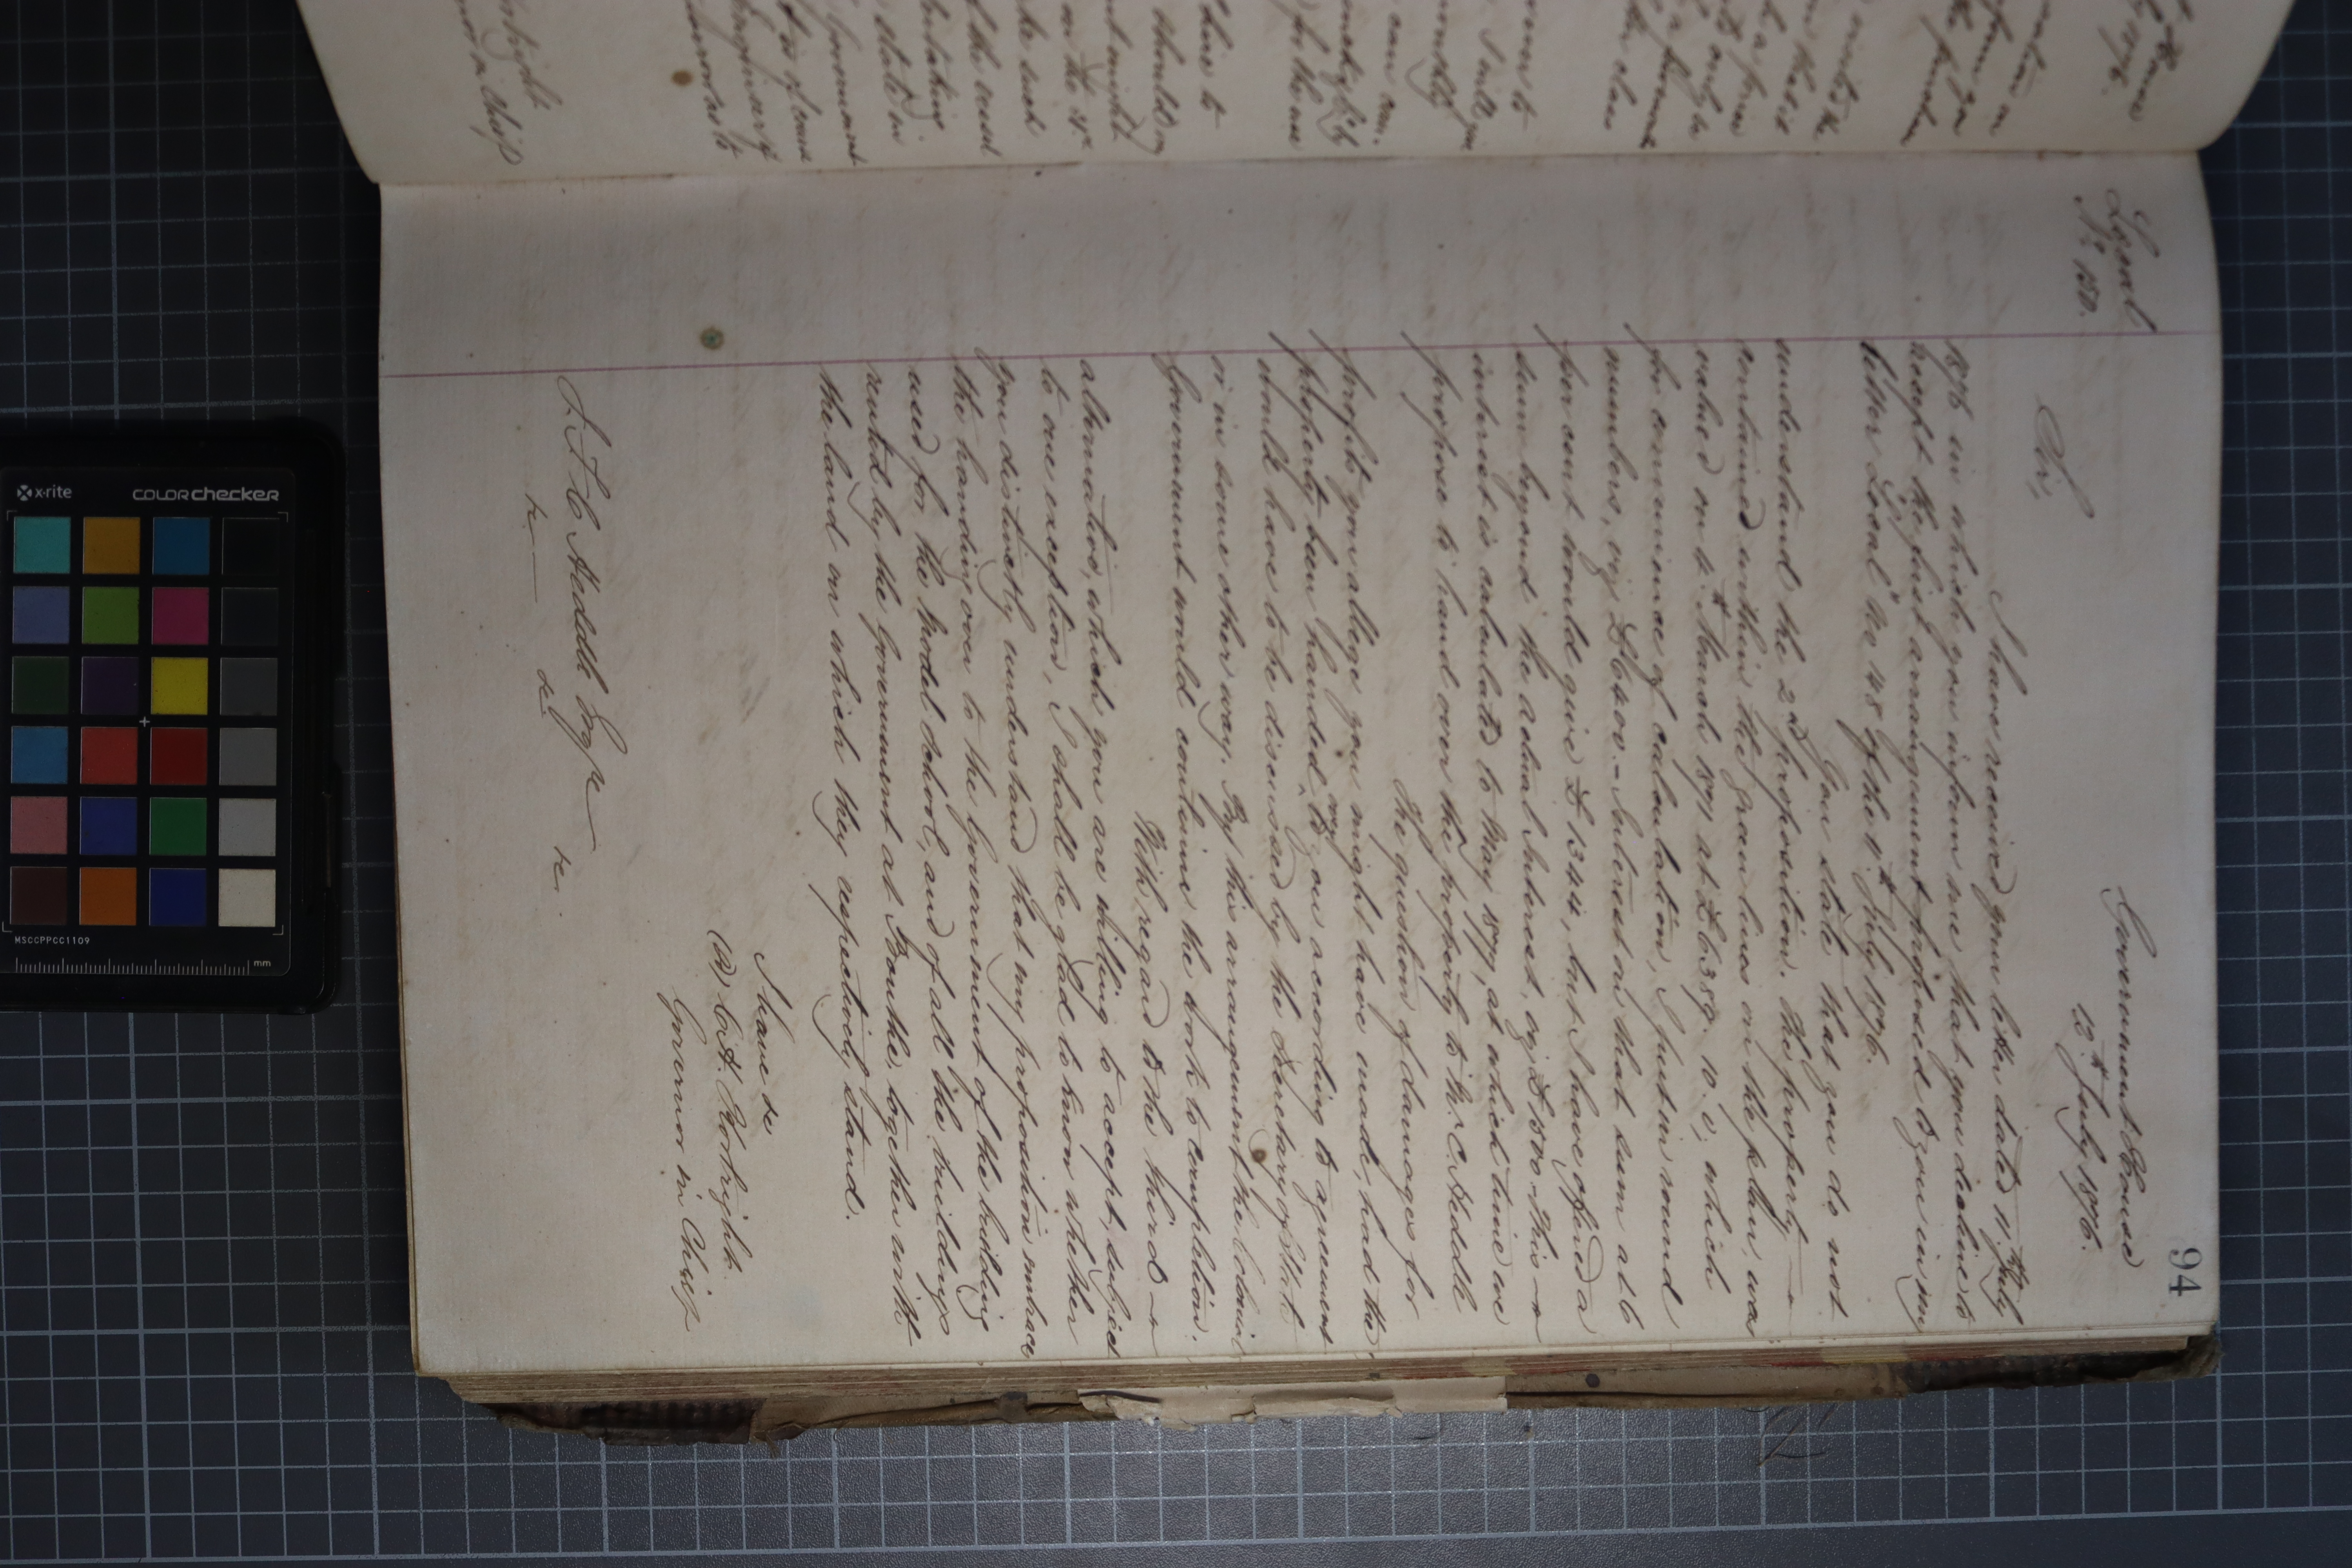 94
Local
No 150.
Government House
12th July 1876.
Sir,
I have received your letter dated 11th July
1876 in which you inform me that you decline to
accept the first arrangement proposed to you in my
letter Local No 148 of the 11th July 1876.
You state that you do not
understand the 2d proposition. The property
contained within the green lines on the plan, was
valued on 4th March 1871 at £6389. 10. 0, which
for convenience of calculation, I put in round
numbers, viz £6400 - Interest on that sum at 6
per cent would give £1344, but I have offered a
sum beyond the actual Interest, viz £1500 - This
interest is calculated to May 1877, at which time we
propose to hand over the property to Mr C. Heddle
The question of damages for
profits you allege you might have made, had the
property been handed over to you according to agreement
would have to be discussed by the Secretary of State
or in some other way. By this arrangement the Colonial
Government would continue the work to completion.
With regard to the third
alternative, which you are willing to accept, subject
to one exception, I shall be glad to know whether
you distinctly understand that my proposition embraces
the handing over to the Government of the building
used for the Model School, and of all the buildings
rented by the Government at Bonthe, together with
the land on which they respectively stand.
I have &c
(s) C. H. Kortright.
Governor in Chief
Heddle Esqre
&c &c &c.
X x-rite
colorchecker
MSCCPPCC1109
mm